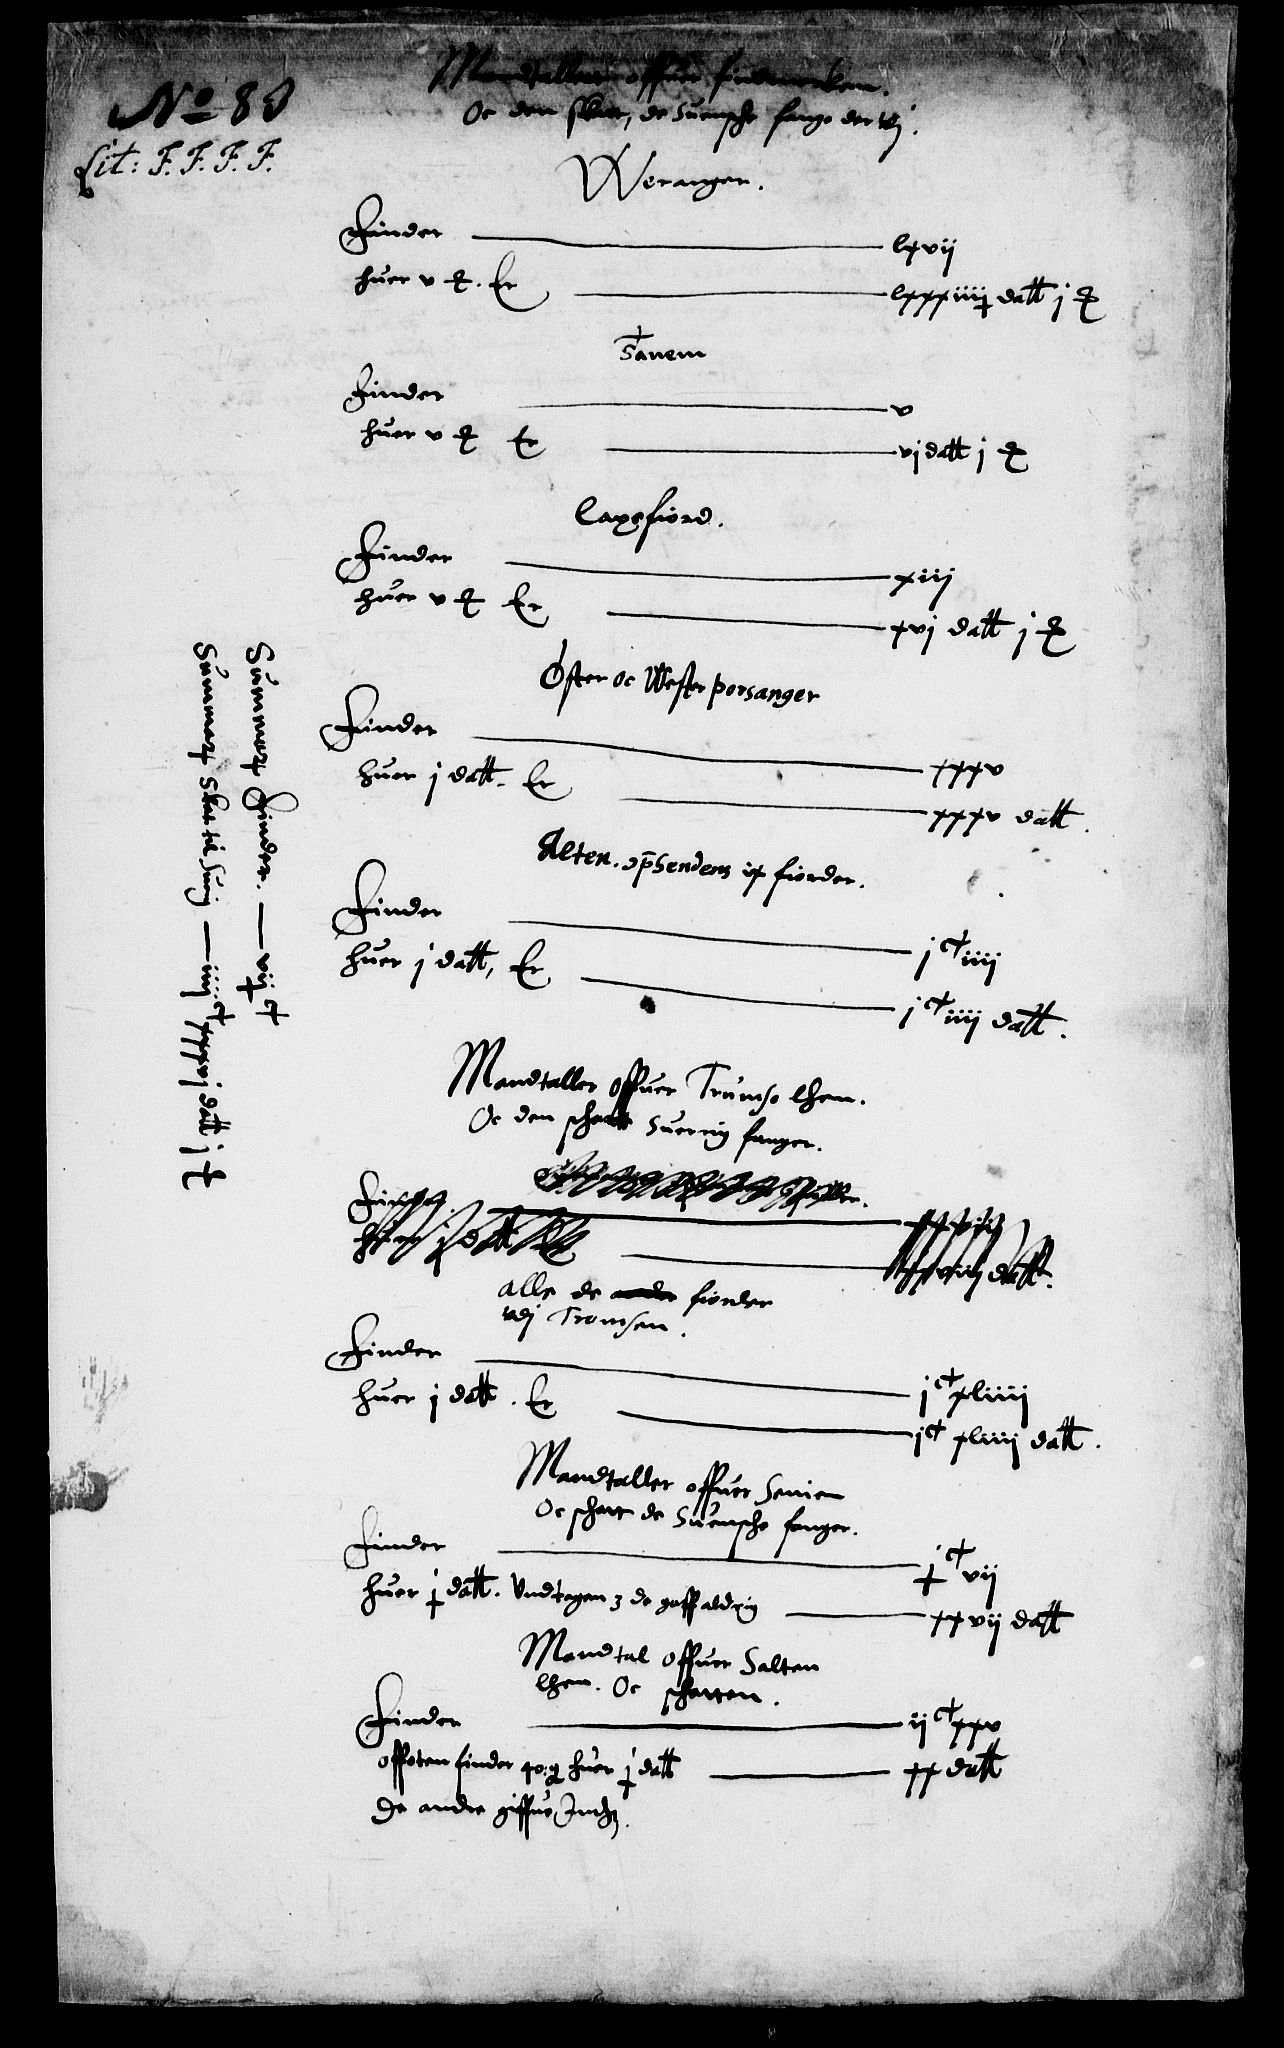 No 80
Lit: F. F. F. F.
Mandtallet offuer findmarken.
Oc den skat, de Suensche fange der vdj.
Weranger.
Finder — lxvij
huer v ȶ. Er — lxxxiiij dalt j ȶ
Tanem
Finder — v
huer v ȶ Er — vj dalt j ȶ
Laxefiord.
Finder — xiij
huer v ȶ Er — xvj dalt j ȶ
Øster oc Wester porsanger
Finder — xxxv
huer j dalt. Er — xxxv dalt.
Alten. fiorder.
Finder — jᶜ iiij
huer j dalt, Er — jᶜ iiij dalt.
Mandtaller offuer Trumsø lhen.
Oc den schatt Suerrig fanger.
alle de andre fiorder
vdj Tromsen.
Finder — jᶜ xliiij
huer j dalt. Er — jᶜ xliiij dalt.
Mandtaller offuer Senien
Oc schatt de Suensche fanger.
Finder — jᶜ vij
huer j dalt. Vndtagen 3 de gaff aldrig — xxvij dalt
Mandtal offuer Salten
lhen. Oc schatten.
Finder — ijᶜ xxv
offoten finder 40. huer j dalt — xx dalt
De andre giffue Indtz.
Summa Finder. — vijᶜ
Summa Skat til Suerig — iiijᶜ xxxvj dalt j ȶ